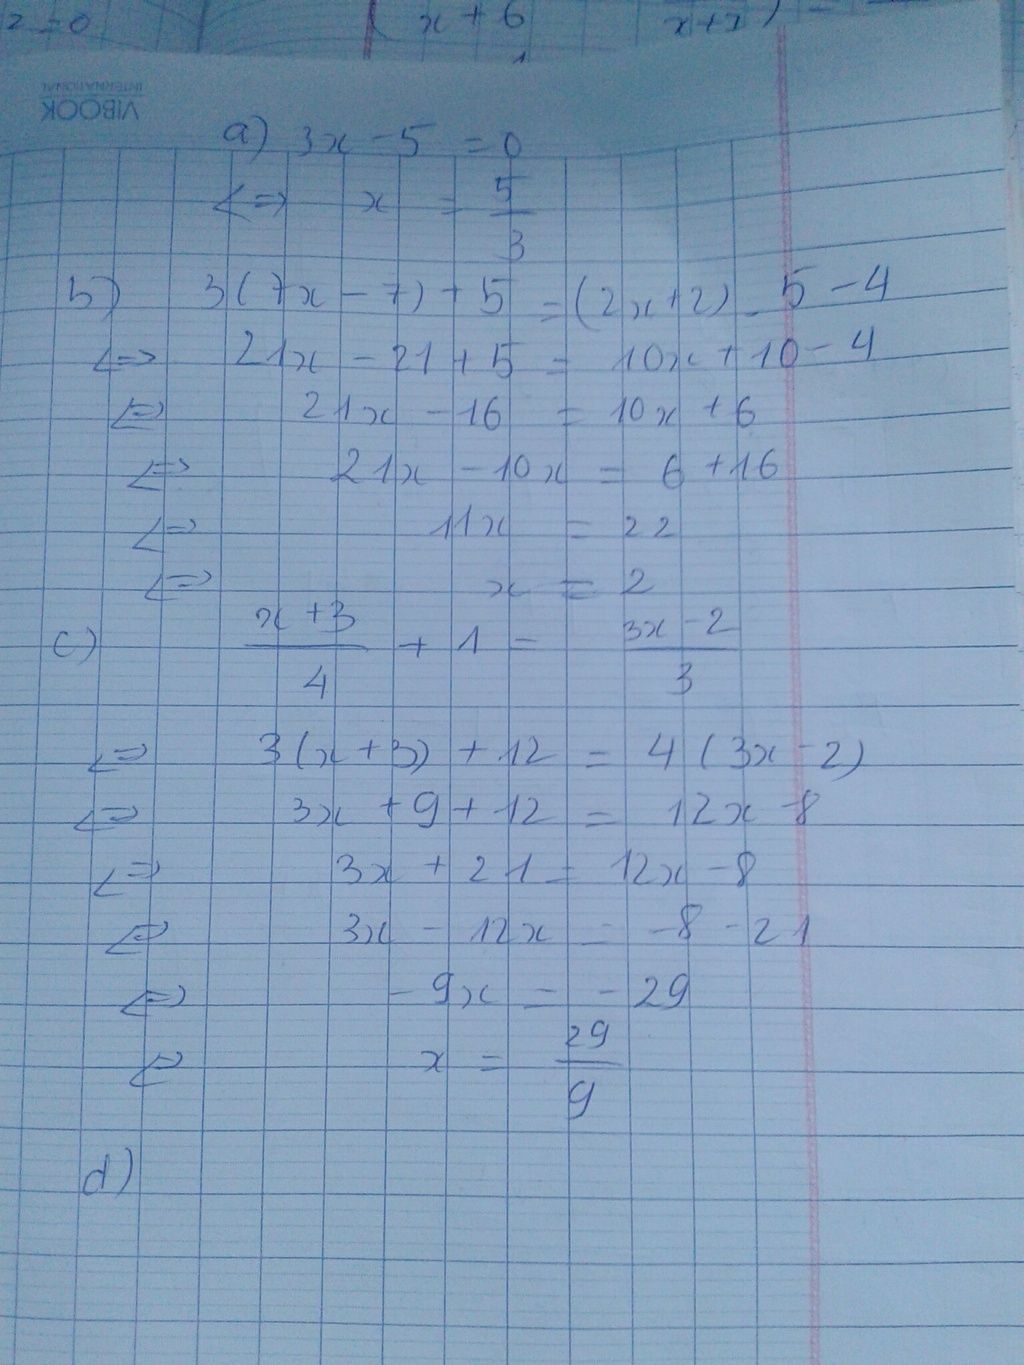 2 = 0 x + 6 x+1
VIBOOK
INTERNATIONAL
a) 3x - 5 = 0
<=> x = 5/3
b) 3(7x - 7) + 5 = (2x+2) . 5 - 4
<=> 21x - 21 + 5 = 10x + 10 - 4
<=> 21x - 16 = 10x + 6
<=> 21x - 10x = 6 + 16
<=> 11x = 22
<=> x = 2
c) x + 3/4 + 1 = 3x - 2/3
<=> 3(x + 3) + 12 = 4(3x - 2)
<=> 3x + 9 + 12 = 12x - 8
<=> 3x + 21 = 12x - 8
<=> 3x - 12x = -8 - 21
<=> -9x = -29
<=> x = 29/9
d)